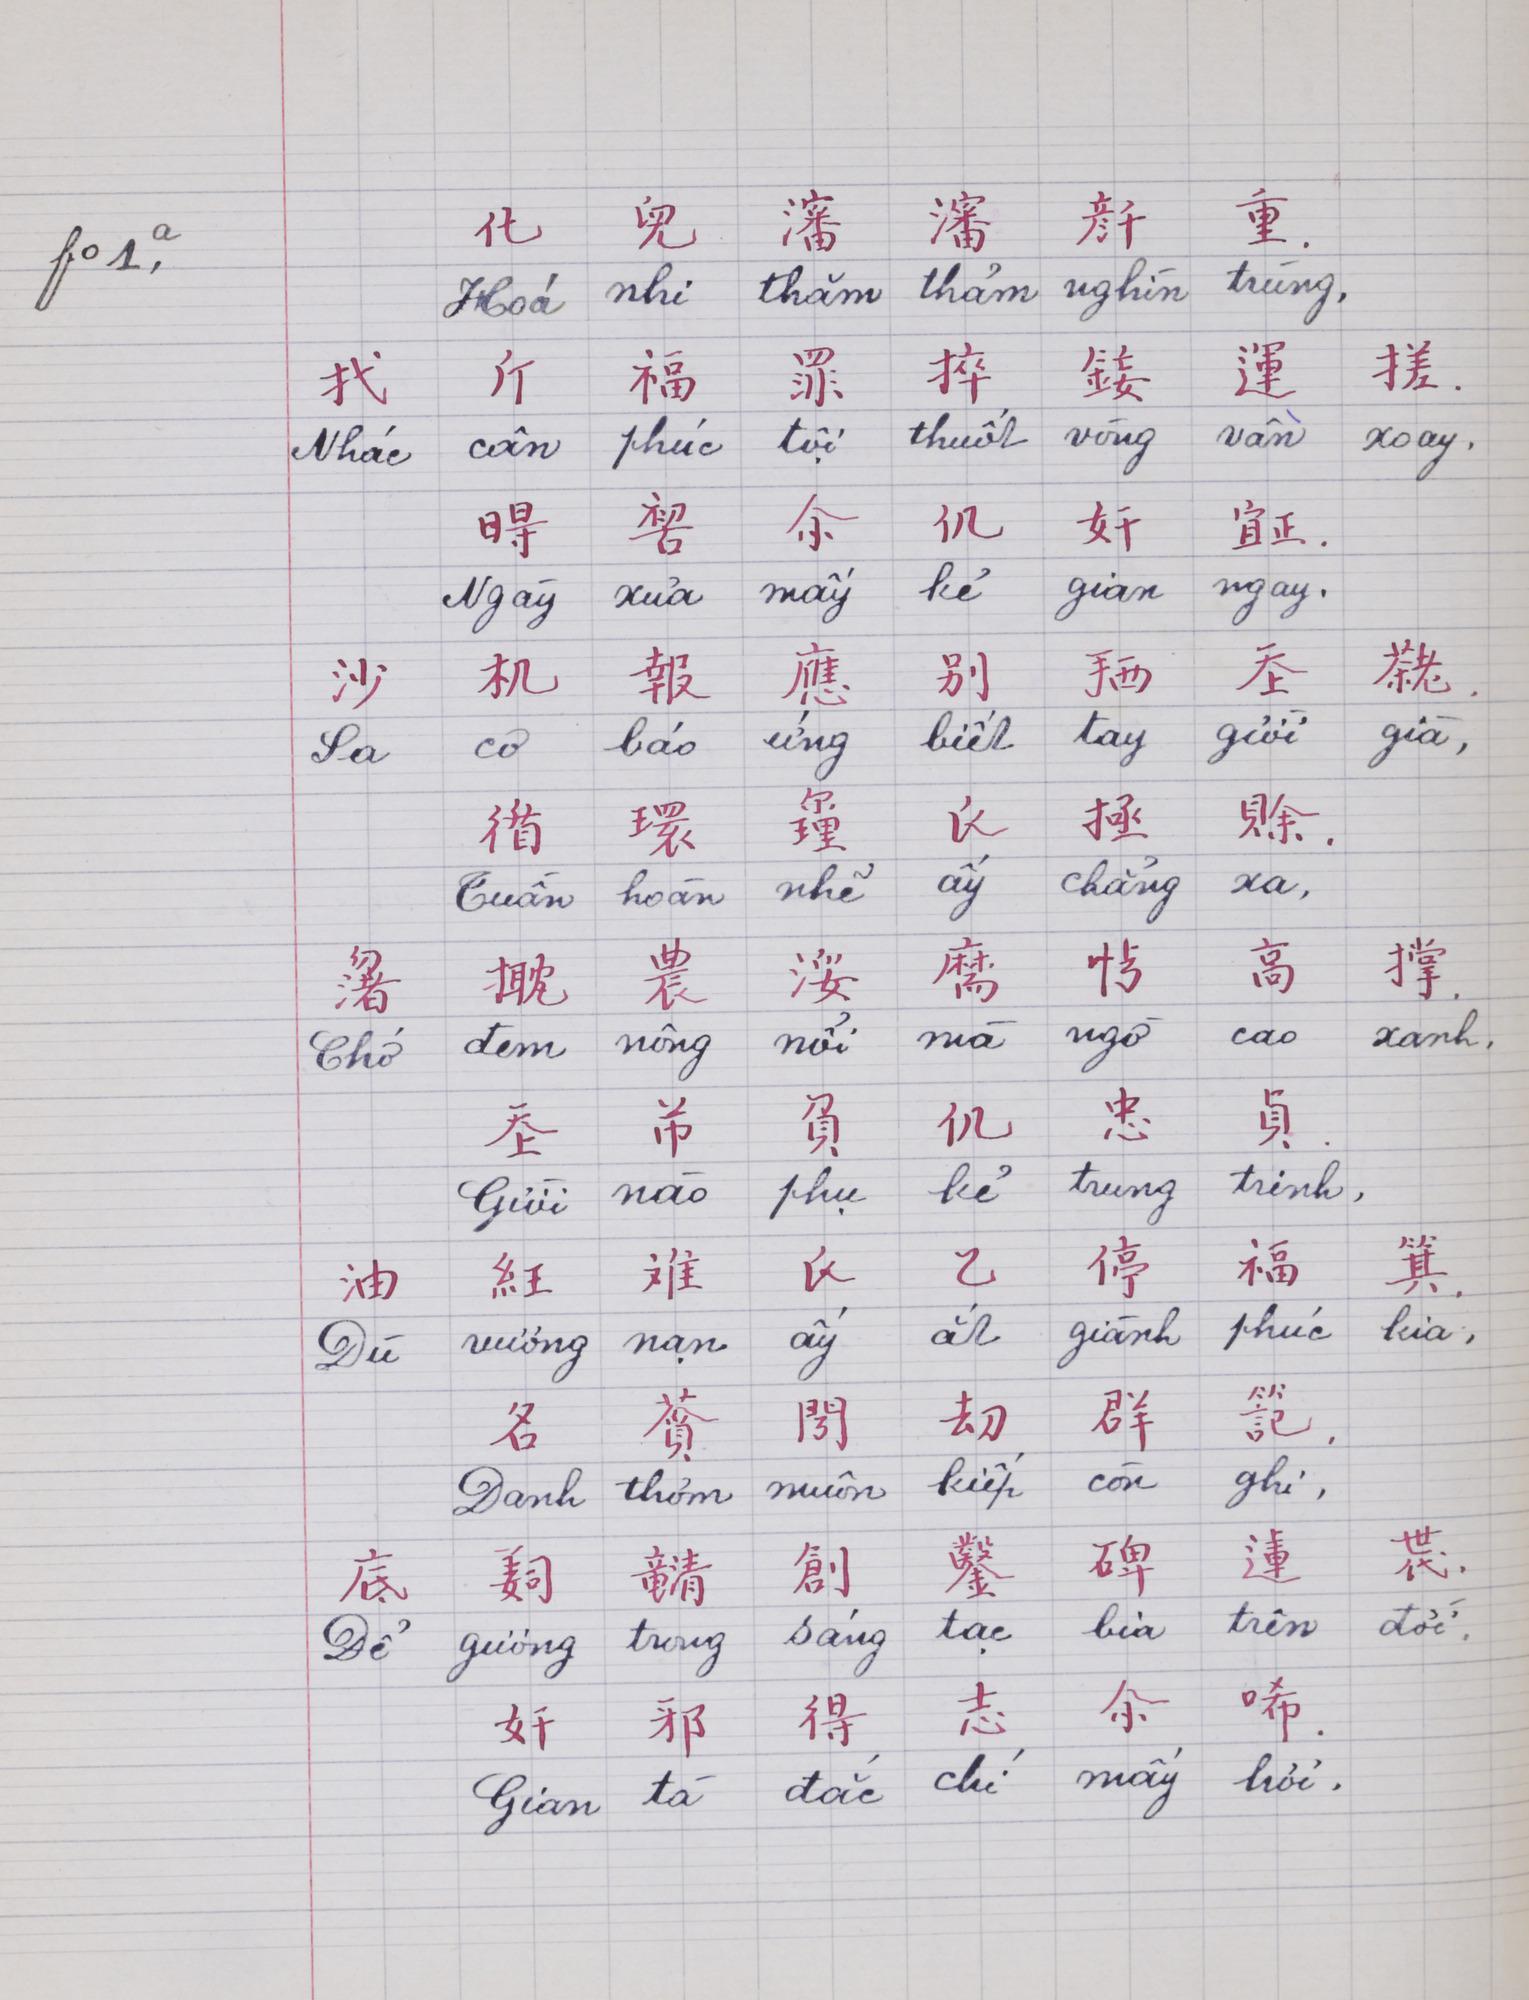 fo 1.a
化 兒 瀋 瀋 𠦳 重.
Hoá nhi thăm thẳm nghìn trùng,
找 斤 福 罪 捽 𨦩 運 搓.
Nhắc cân phúc tội thuốt vòng vần xoay.
𣈗 𠸗 余 仉 奸 𣦍.
Ngày xưa mấy kẻ gian ngay.
沙 机 報 應 别 𢬣 𡗶 𦓅.
Sa cơ báo ứng biết tay giời già,
循 環 𨤰 氏 拯 賖.
Tuần hoàn nhẽ ấy chẳng xa,
𤏧 抌 農 浽 麻 𢗷 高 撑.
Chớ đem nông nổi mà ngờ cao xanh,
𡗶 芾 負 仉 忠 貞.
Giời nào phụ kẻ trung trinh,
油 紅 难 氏 乙 停 福 箕.
Dù vướng nạn ấy ắt giành phúc kia,
名 𦹳 𨷈 刧 群 𥱬.
Danh thơm muôn kiếp còn ghi,
底 𦎛 𤄯 創 鑿 碑 連 𠁀.
Để gương trong sáng tạc bia trên đời.
奸 邪 得 志 余 唏.
Gian tà đắc chí mấy hơi.